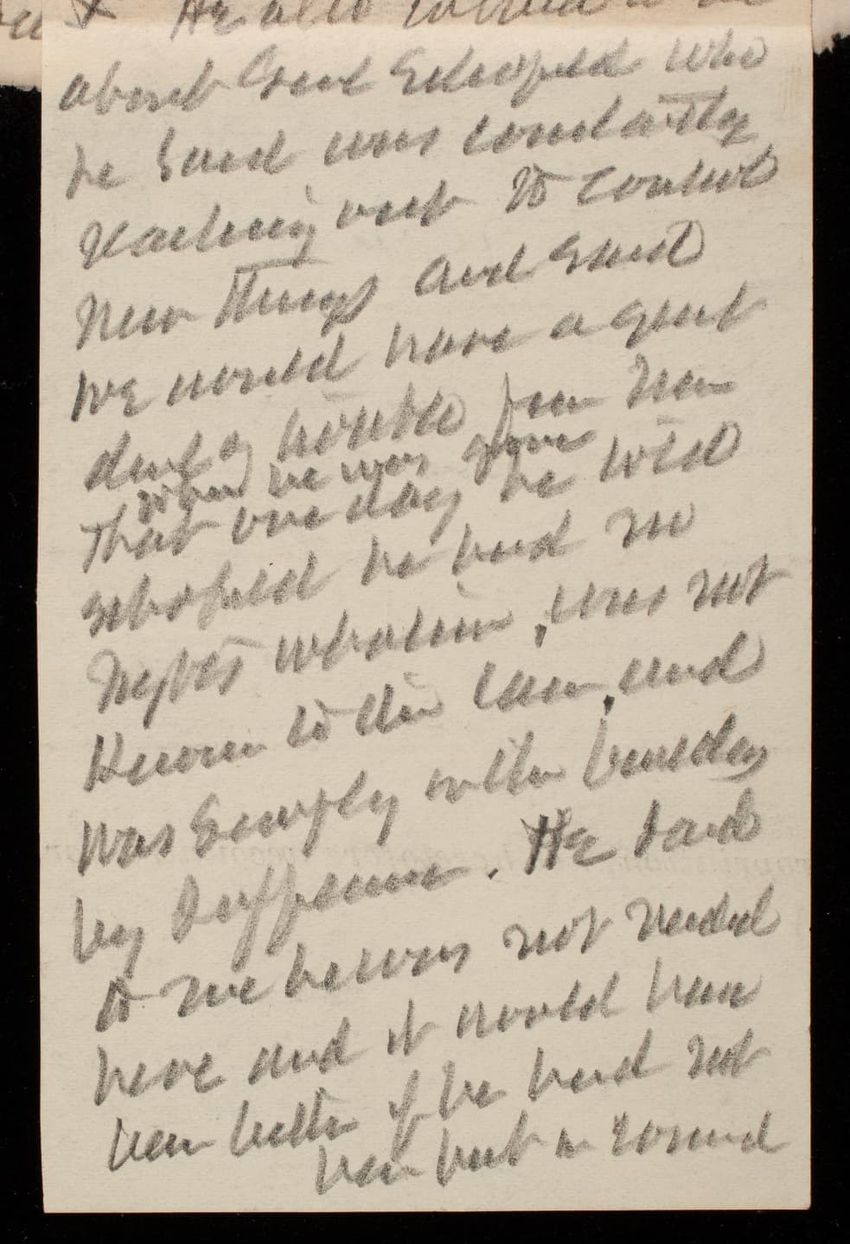 He also talked to me
about Genl Schofield who
he said was constantly
reaching out to control
new things and said
we would have a great
deal of trouble from him
when he was gone
That one day he told
Schofield he had no
rights whatever, was not
known to the law, and
was simply on the boundary
by sufferance. He said
to me he was not needed
here and it would have
been better if he had not
been put in command